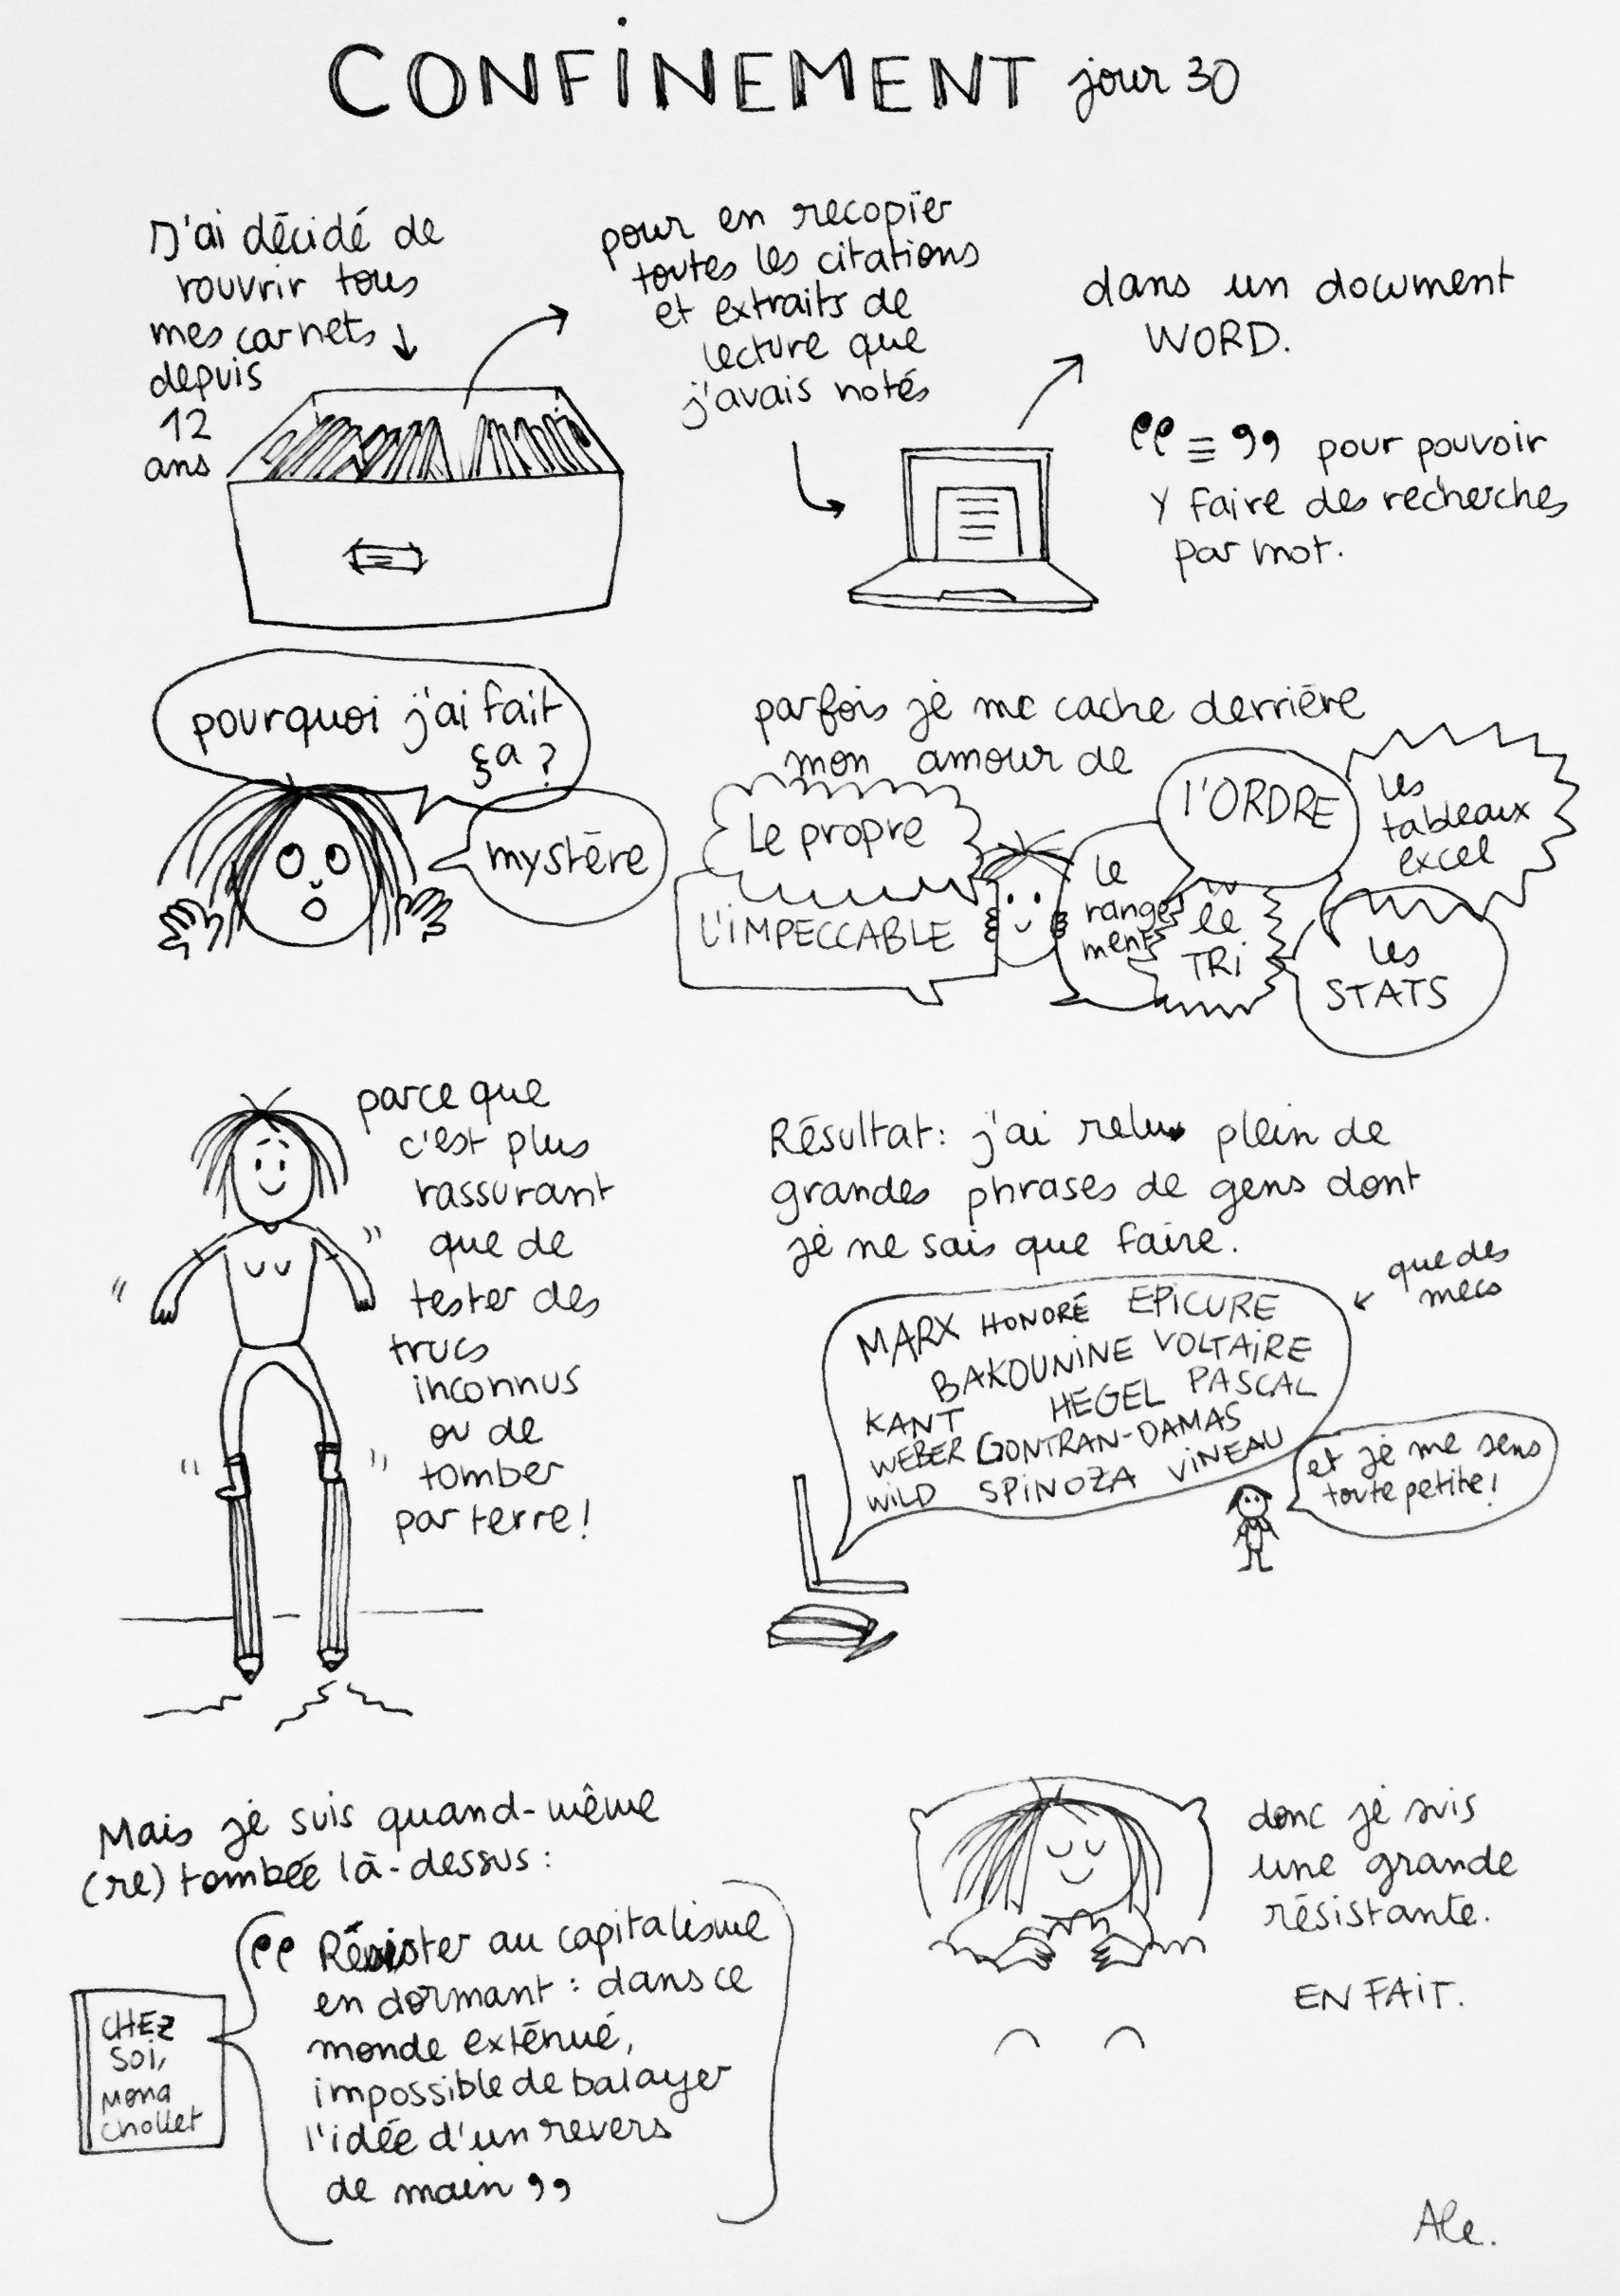 CONFINEMENT jour 30
J'ai décidé de
rouvrir tous
mes carnets
depuis
12
ans
pour en recopier
toutes les citations
et extraits de
lecture que
j'avais notés
dans un document
WORD.
pour pouvoir
y faire des recherches
par mot.
pourquoi j'ai fait
ça ?
mystère
parfois je me cache derrière
mon amour de
Le propre
L'IMPECCABLE
le
range
ment
l'ORDRE
le
TRi
les
tableaux
excel
les
STATS
parce que
c'est plus
rassurant
que de
tester des
trucs
inconnus
ou de
tomber
par terre !
Résultat : j'ai relu plein de
grandes phrases de gens dont
je ne sais que faire.
que des
mecs
MARX HONORÉ EPICURE
BAKOUNINE VOLTAIRE
KANT HEGEL PASCAL
WEBER GONTRAN-DAMAS
WILD SPINOZA VINEAU
et je me sens
toute petite !
Mais je suis quand-même
(re) tombée là-dessus :
CHEZ
SOI,
Mona
Chollet
“ Résister au capitalisme
en dormant : dans ce
monde exténué,
impossible de balayer
l'idée d'un revers
de main ”
donc je suis
une grande
résistante.
EN FAIT.
Ale.